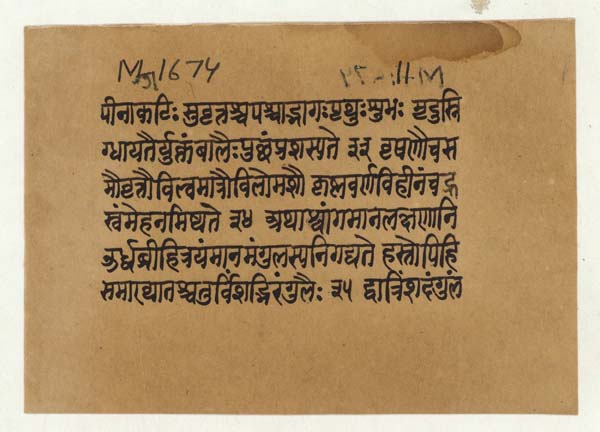 M 1674 11-M
पीनाकटिः सुवृत्तश्चपश्चाद्भागःपृथुःशुभः मृदुस्नि
ग्धायतैर्युक्तंबालैःपुछंप्रशस्यते ३३ वृषणौचस
मौवृत्तौविल्वमात्रौविलोमशौ कृष्णवर्णविहीनंच
स्वंमेहनमिष्यते ३४ अथाश्वांगमानलक्षणानि
ऊर्ध्वव्रीहित्रयंमानमंगुलस्यनिगद्यते हस्तोपिहि
समाख्यातश्चतुर्विंशद्भिरंगुलैः ३५ द्वात्रिंशदंगुलं